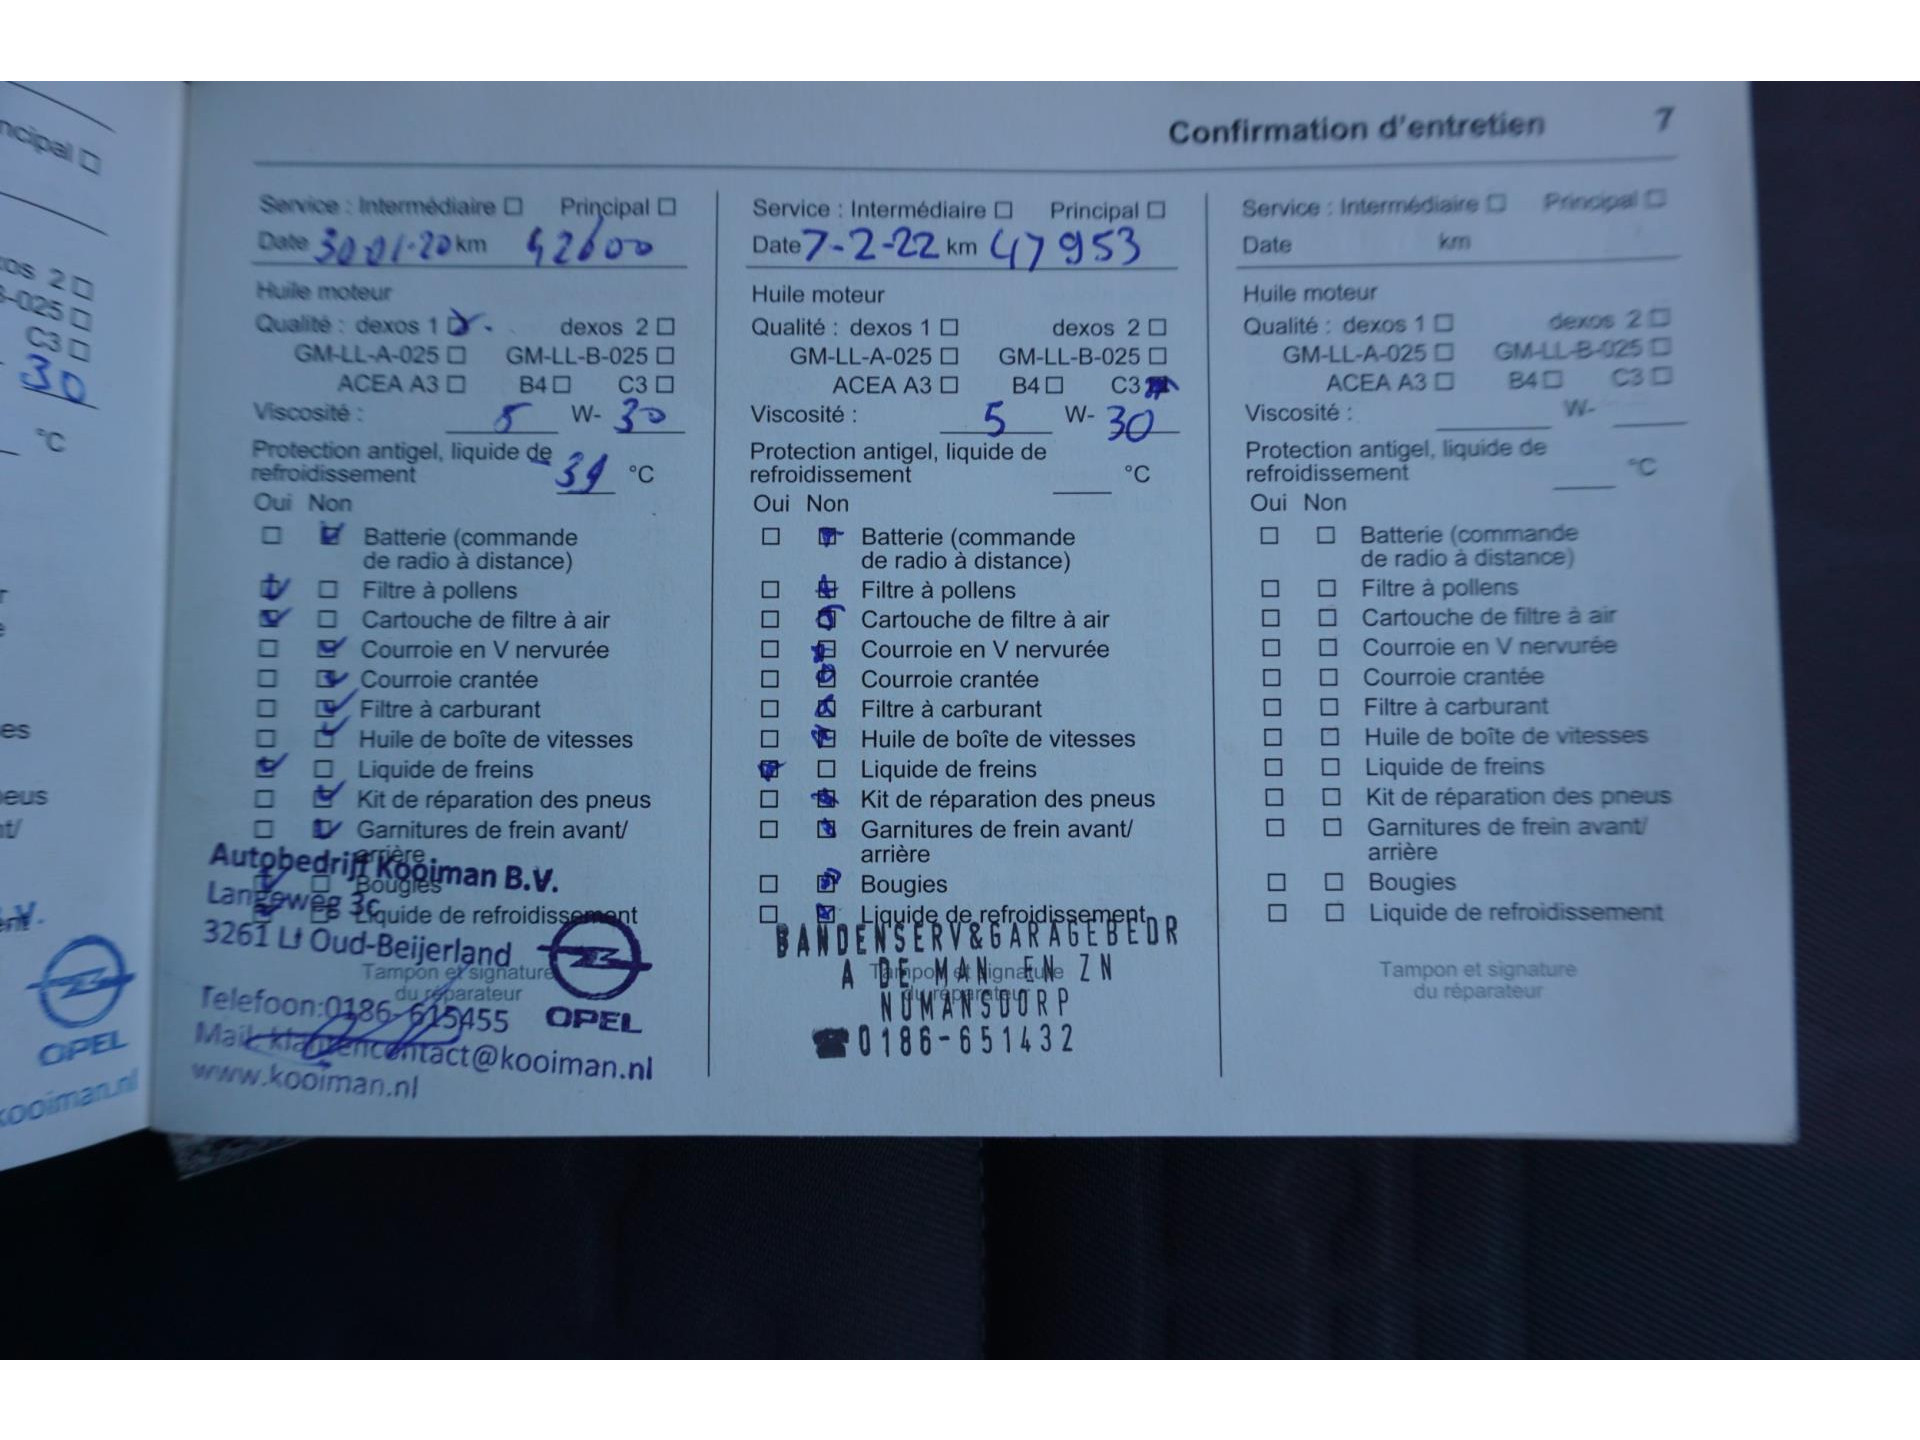 ncipal
os 2
B-025
C3
30
°C
r
e
es
neus
nt/
B.V.
OPEL
kooiman.nl
Confirmation d'entretien 7
Service : Intermédiaire Principal
Date 30-01-20 km 42600
Huile moteur
Qualité : dexos 1 dexos 2
GM-LL-A-025 GM-LL-B-025
ACEA A3 B4 C3
Viscosité : 5 W- 30
Protection antigel, liquide de
refroidissement 39 °C
Oui Non
Batterie (commande
de radio à distance)
Filtre à pollens
Cartouche de filtre à air
Courroie en V nervurée
Courroie crantée
Filtre à carburant
Huile de boîte de vitesses
Liquide de freins
Kit de réparation des pneus
Garnitures de frein avant/
arrière
Bougies
Liquide de refroidissement
Tampon et signature
du réparateur
Autobedrijf Kooiman B.V.
Langeweg 3c
3261 LJ Oud-Beijerland
Telefoon:0186-615455
Mail: klantencontact@kooiman.nl
www.kooiman.nl
OPEL
Service : Intermédiaire Principal
Date 7-2-22 km 47953
Huile moteur
Qualité : dexos 1 dexos 2
GM-LL-A-025 GM-LL-B-025
ACEA A3 B4 C3
Viscosité : 5 W- 30
Protection antigel, liquide de
refroidissement °C
Oui Non
Batterie (commande
de radio à distance)
Filtre à pollens
Cartouche de filtre à air
Courroie en V nervurée
Courroie crantée
Filtre à carburant
Huile de boîte de vitesses
Liquide de freins
Kit de réparation des pneus
Garnitures de frein avant/
arrière
Bougies
Liquide de refroidissement
Tampon et signature
du réparateur
BANDENSERV&GARAGEBEDR
A DE MAN EN ZN
NUMANSDORP
☎0186-651432
Service : Intermédiaire Principal
Date km
Huile moteur
Qualité : dexos 1 dexos 2
GM-LL-A-025 GM-LL-B-025
ACEA A3 B4 C3
Viscosité : W-
Protection antigel, liquide de
refroidissement °C
Oui Non
Batterie (commande
de radio à distance)
Filtre à pollens
Cartouche de filtre à air
Courroie en V nervurée
Courroie crantée
Filtre à carburant
Huile de boîte de vitesses
Liquide de freins
Kit de réparation des pneus
Garnitures de frein avant/
arrière
Bougies
Liquide de refroidissement
Tampon et signature
du réparateur